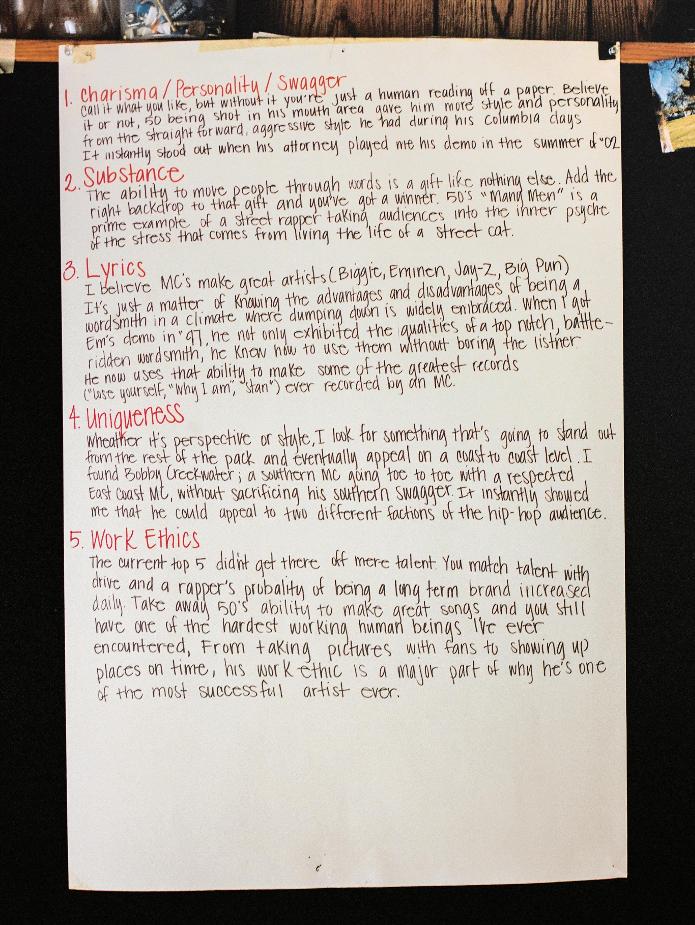 1. Charisma/Personality/Swagger
Call it what you like, but without it you're just a human reading off a paper. Believe
it or not, 50 being shot in his mouth area gave him more style and personality
from the straight forward, aggressive style he had during his Columbia days
It instantly stood out when his attorney played me his demo in the summer of "02
2. Substance
The ability to move people through words is a gift like nothing else. Add the
right backdrop to that gift and you've got a winner. 50's "Many Men" is a
prime example of a street rapper taking audiences into the inner psyche
of the stress that comes from living the life of a street cat.
3. Lyrics
I believe MC's make great artists (Biggie, Eminen, Jay-Z, Big Pun)
It's just a matter of Knowing the advantages and disadvantages of being a
wordsmith in a climate where dumping down is widely embraced. When I got
Em's demo in "97, he not only exhibited the qualities of a top notch, battle-
ridden wordsmith, he knew how to use them without boring the listner
He now uses that ability to make some of the greatest records
("Lose yourself, "Why I am", "Stan") ever recorded by an MC.
4. Uniqueness
Wheather it's perspective or style, I look for something that's going to stand out
from the rest of the pack and eventually appeal on a coast to coast level. I
found Bobby Creekwater; a southern MC going toe to toe with a respected
East Coast MC, without sacrificing his southern swagger. It instantly showed
me that he could appeal to two different factions of the hip-hop audience.
5. Work Ethics
The current top 5 didn't get there off mere talent. You match talent with
drive and a rapper's probality of being a long term brand increased
daily. Take away 50's ability to make great songs and you still
have one of the hardest working human beings I've ever
encountered, From taking pictures with fans to showing up
places on time, his work ethic is a major part of why he's one
of the most successful artist ever.